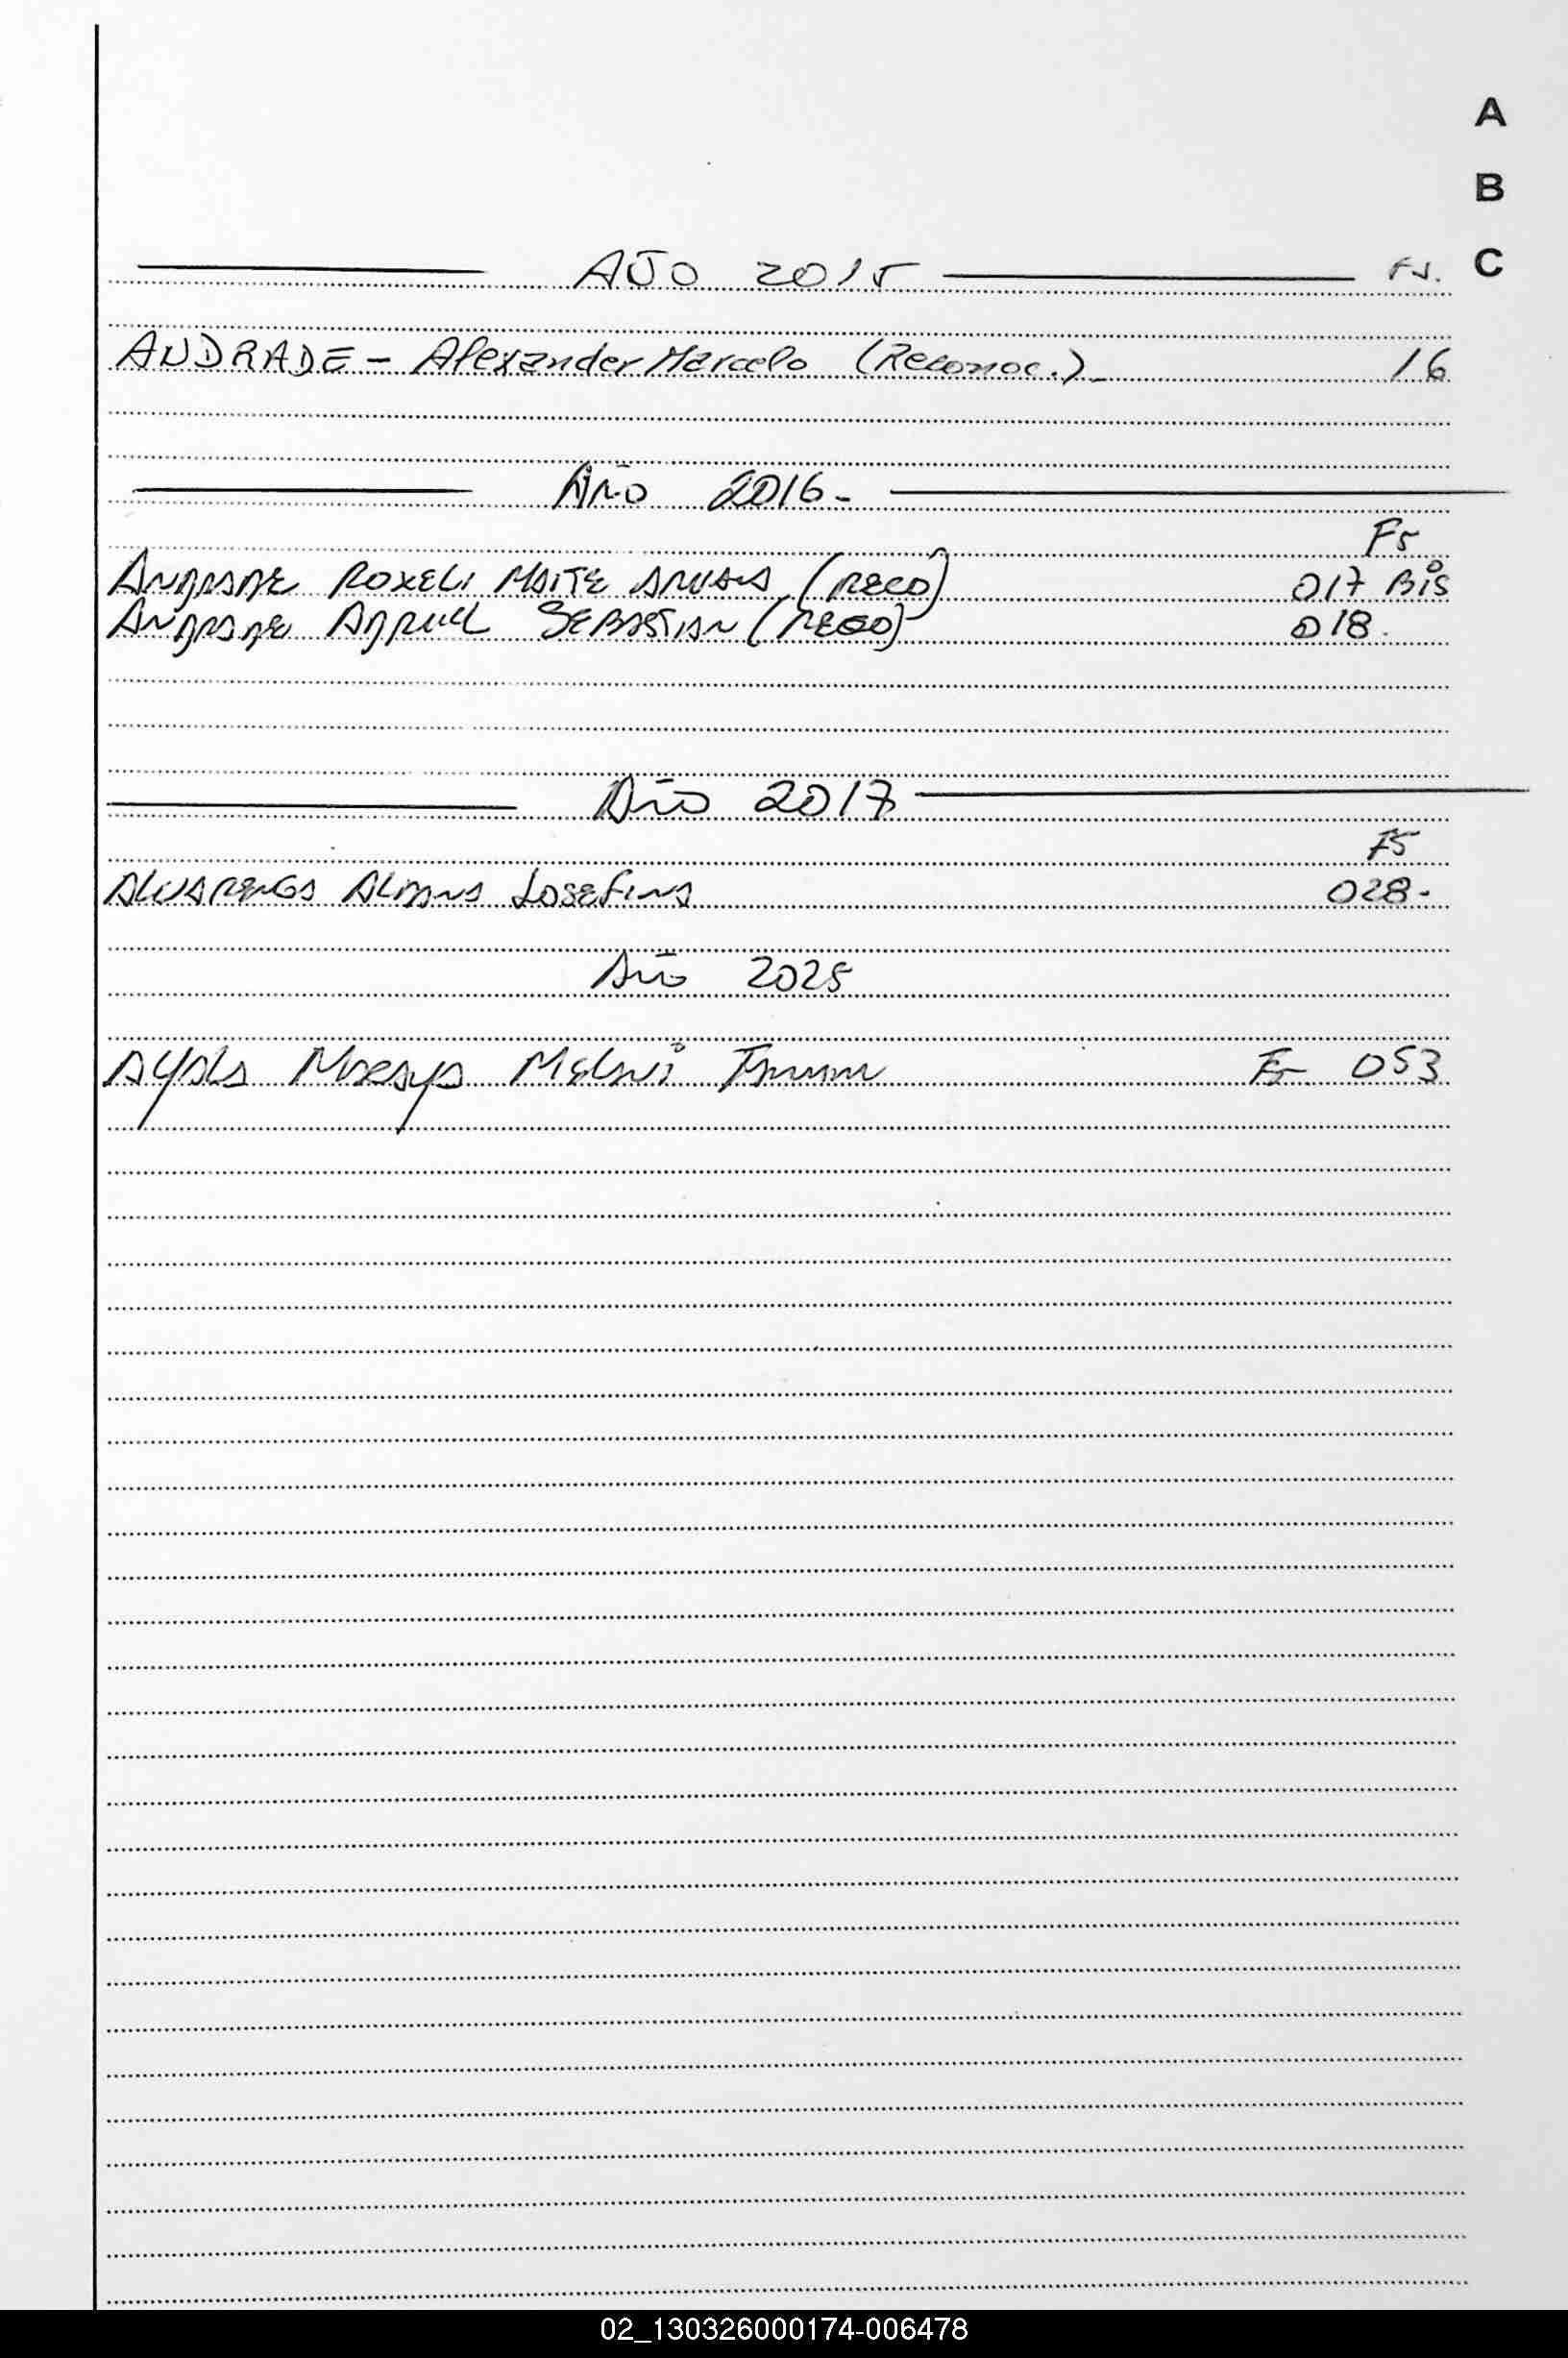 A
B
AÑO 2015 FS. C
ANDRADE - Alexander Marcelo (Reconoc.) 16
Año 2016-
Fs
ANDRADE ROXELI MAITE (RECO) 017 Bis
ANDRADE SEBASTIAN (RECO) 018.
Año 2017
FS
ALVARENGA ALDANA JOSEFINA 028-
Año 2025
AYALA Fs 053
02_130326000174-006478